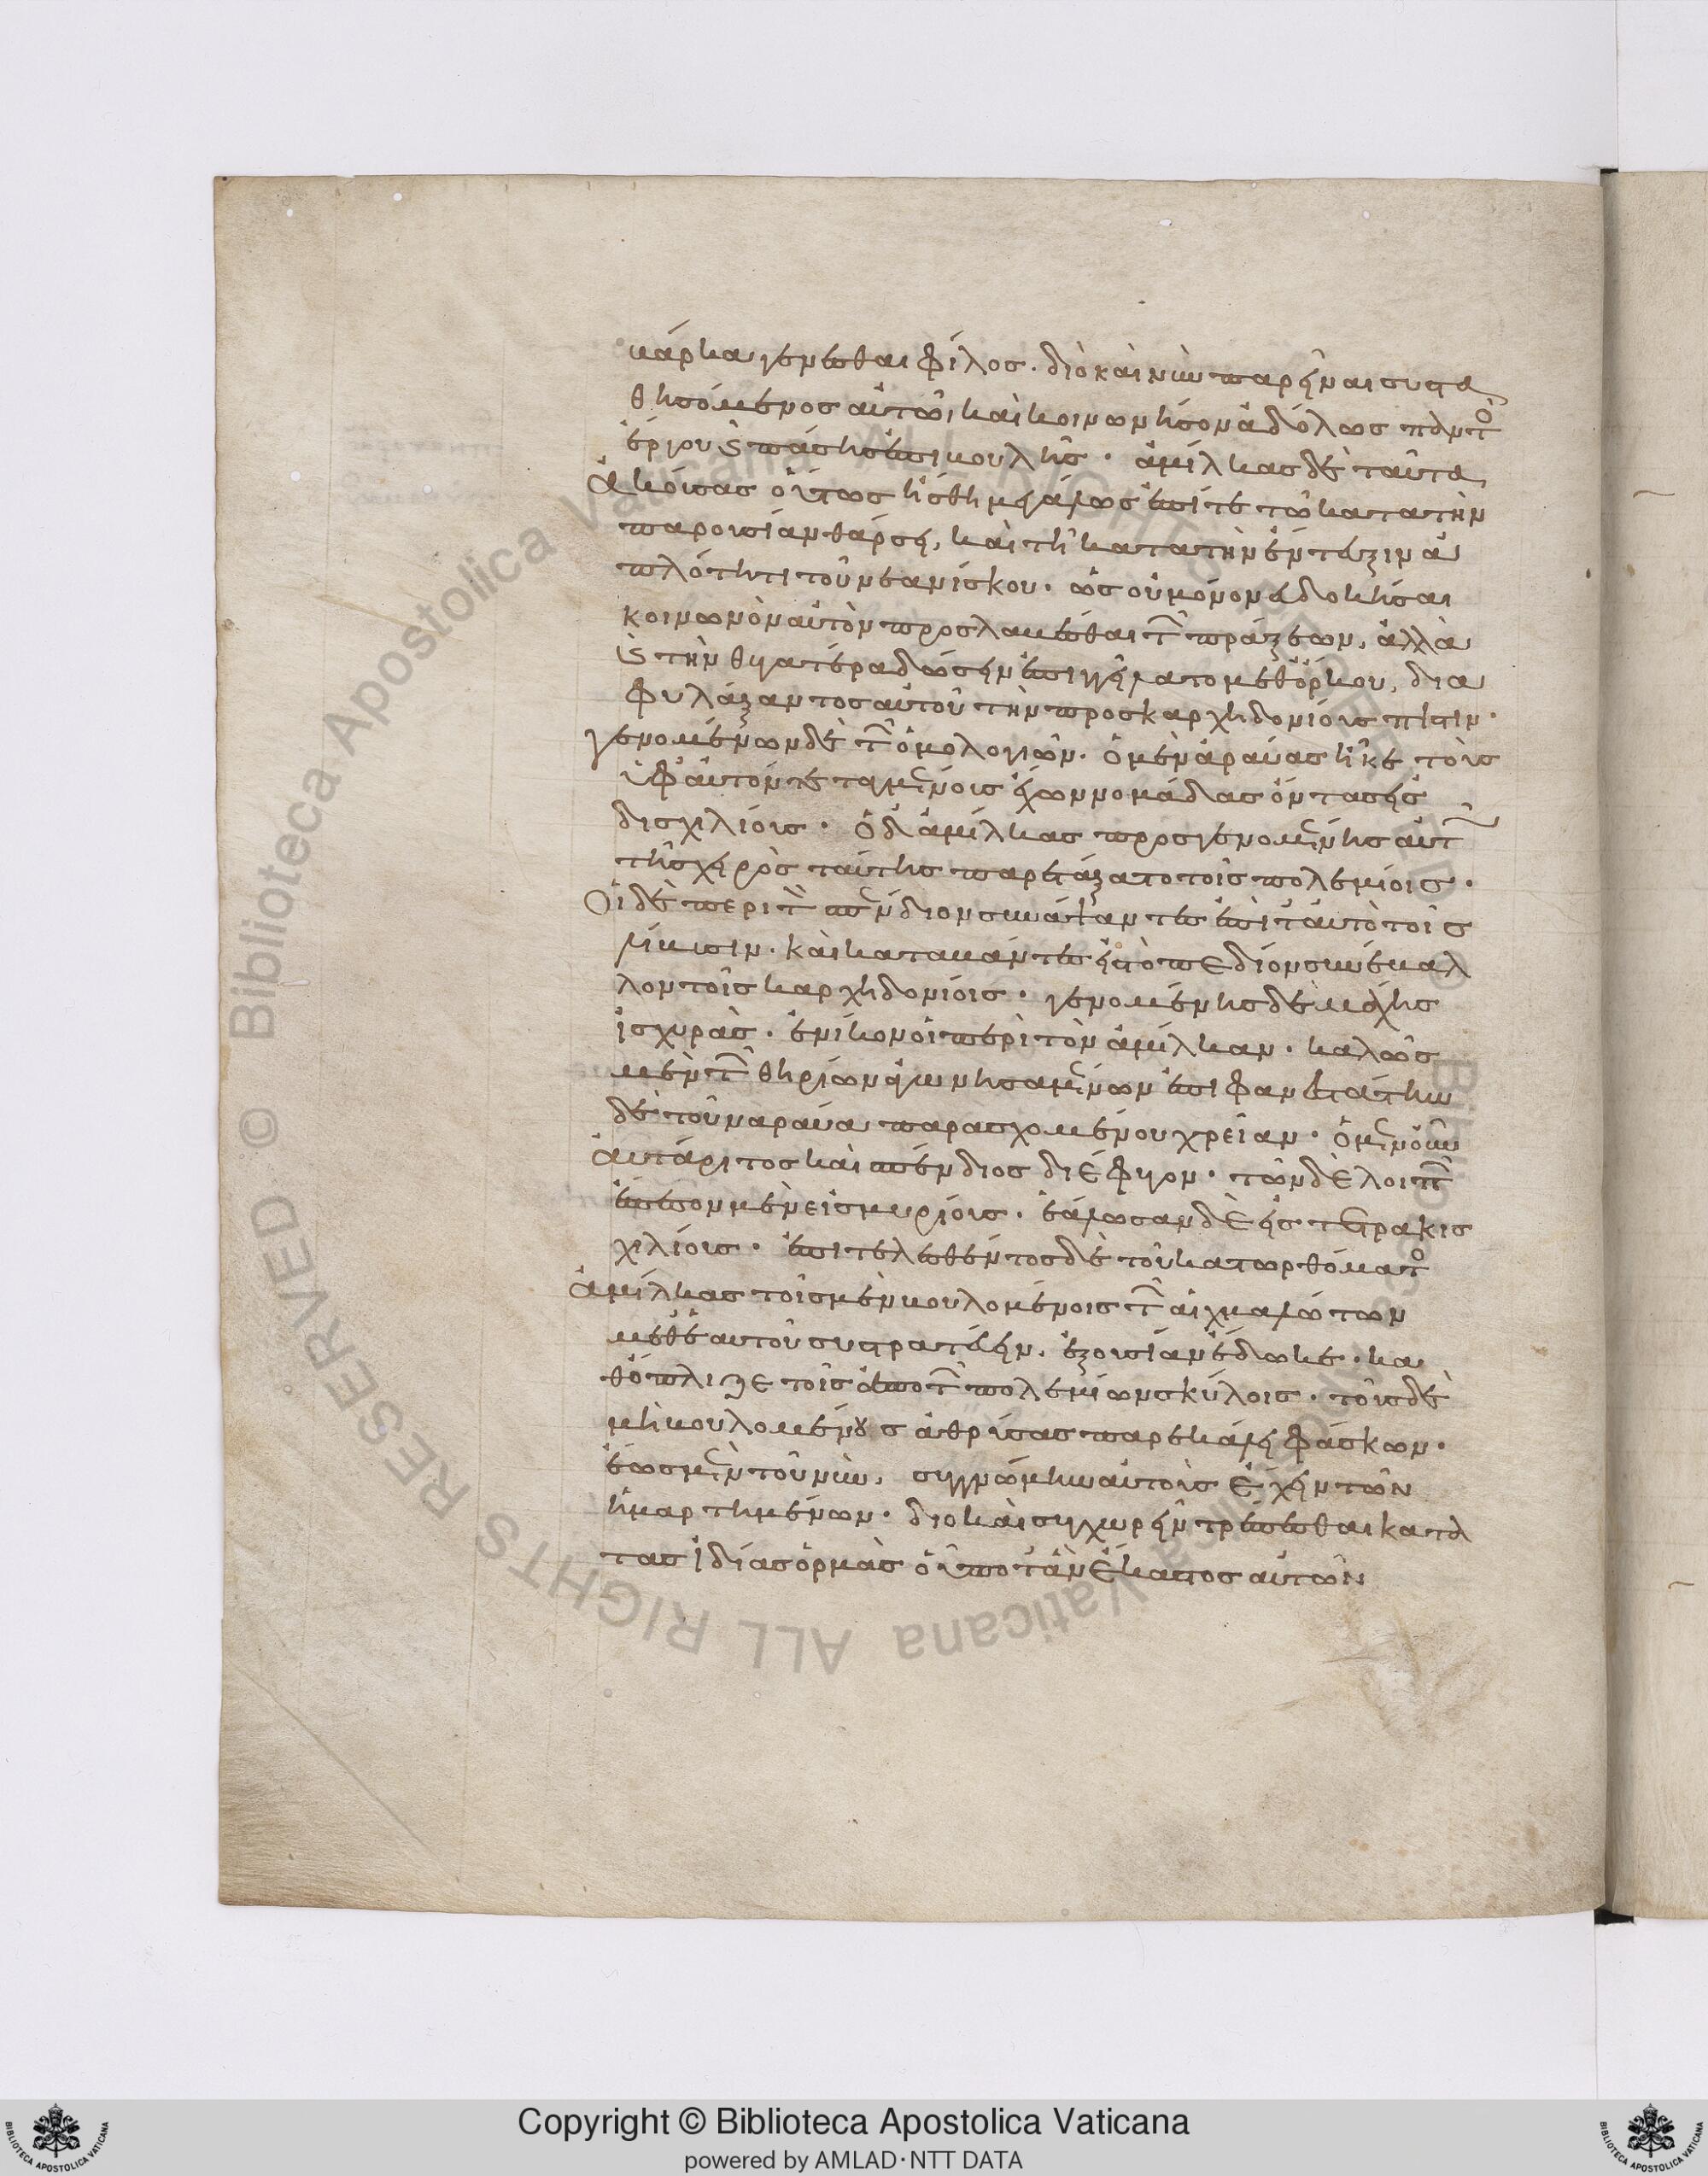 βάρκα γενέσθαι φίλος. διὸ καὶ νῦν παρεῖναι συστα
θησόμενος αὐτῶ, καὶ κοινωνήσον ἀδόλως παντὸς
ἔργου καὶ πάσης ἐπιβουλῆς. ἀμίλκας δὲ ταῦτα
ἀκούσας οὕτως ἥσθη μεγάλως ἐπί τε τῶ κατὰ τὴν
παρουσίαν θάρσει, καὶ τῆ κατὰ τὴν ἔντευξιν ἁ
πλότητι τοῦ νεανίσκου. ὡς οὐ μόνον εὐδοκῆσαι
κοινωνὸν αὐτὸν προσλαβέσθαι τῶν πράξεων, ἀλλὰ
καὶ τὴν θυγατέρα δώσειν ἐπηγγείλατο μεθ' ὅρκου, δια
φυλάξαντος αὐτοῦ τὴν πρὸς καρχηδονίους πίστιν.
γενομένων δὲ τῶν ὁμολογιῶν. ὁ μὲν ναραύας ἧκε τοὺς
ὑφ' αὑτόν τεταγμένους ἔχων νομάδας ὄντας εἰς
δισχιλίους. ὁ δ' ἀμίλκας προσγενομένης αὐτῶ
τῆς χειρὸς ταύτης παρετάξατο τοῖς πολεμίοις.
Οἱ δὲ περὶ τὸν σπένδιον συνάψαντες ἐπὶ ταὐτὸ τοῖς
λίβυσιν. καὶ καταβάντες εἰς τὸ πεδίον συνέβαλ
λον τοῖς καρχηδονίοις. γενομένης δὲ μάχης
ἰσχυρᾶς. ἐνίκων οἱ περὶ τὸν ἀμίλκαν. καλῶς
μὲν τῶν θηρίων ἀγωνισαμένων ἐπιφανεστάτην
δὲ τοῦ ναραύα παρασχομένου χρείαν. ὁ μὲν οὖν
αὐτάριτος καὶ σπένδιος διέφυγον. τῶν δὲ λοιπῶν
ἔπεσον μὲν εἰς μυρίους. ἑάλωσαν δὲ εἰς τετρακισ
χιλίους. ἐπιτελεσθέντος δὲ τοῦ κατορθώματος
ἀμίλκας τοῖς μὲν βουλομένοις τῶν αἰχμαλώτων
μεθ' ἑαυτοῦ συστρατεύειν, ἐξουσίαν ἔδωκε. κα
θόπλιζε τοῖς ἀπὸ τῶν πολεμίων σκύλοις. τοὺς δὲ
μὴ βουλομένους ἀθροίσας παρεκάλει φάσκων.
ἕως μὲν τοῦ νῦν, συγγνώμην αὐτοῖς ἔχειν τῶν
ἡμαρτημένων. διὸ καὶ συγχωρεῖν τρέπεσθαι κατὰ
τὰς ἰδίας ὁρμὰς οὗ ποτ' ἂν ἕκαστος αὐτῶν
Copyright © Biblioteca Apostolica Vaticana
powered by AMLAD·NTT DATA